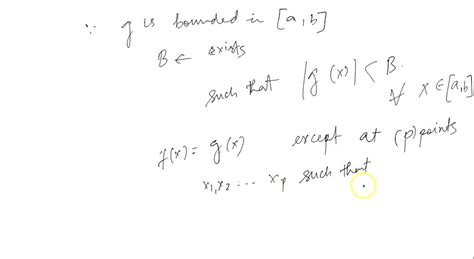 ∵ g is bounded in [a,b]
B ← exists
such that |g(x)| < B. ∀ x ∈ [a,b]
f(x) = g(x) except at (p) points
x₁, x₂ ... xₚ such that